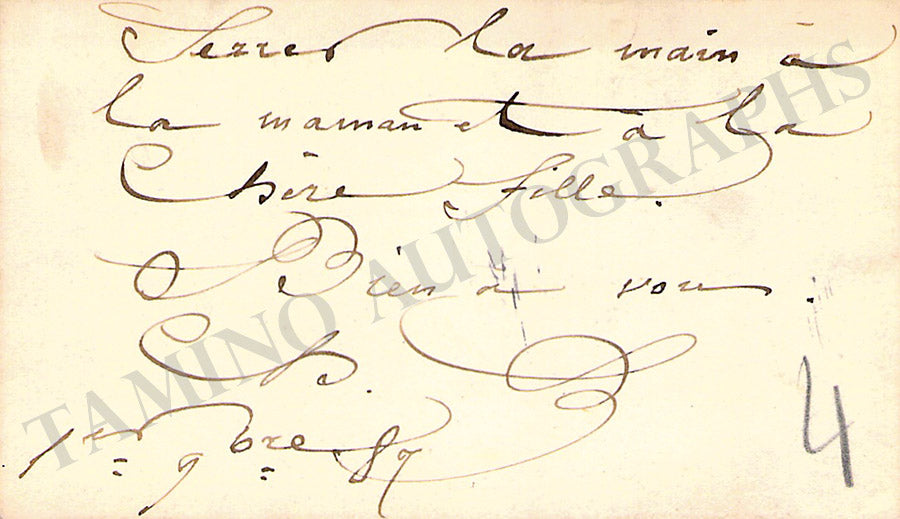 Serrer la main à
la maman et à la
Chère fille.
Bien à vous.
Ch. B
1er 9bre 87
4
TAMINO AUTOGRAPHS